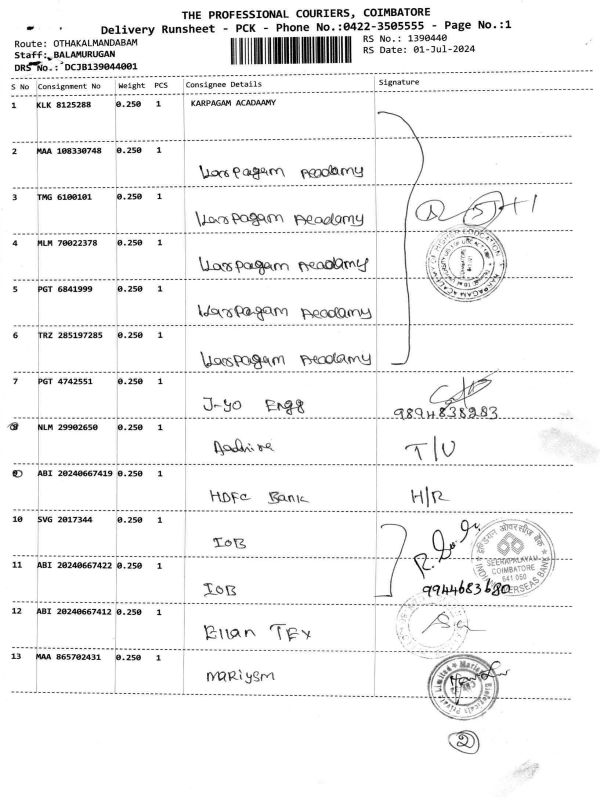 THE PROFESSIONAL COURIERS, COIMBATORE
Delivery Runsheet - PCK - Phone No.:0422-3505555 - Page No.:1
Route: OTHAKALMANDABAM
RS No.: 1390440
Staff: BALAMURUGAN
RS Date: 01-Jul-2024
DRS No.: DCJB139044001
S No Consignment No Weight PCS Consignee Details Signature
1 KLK 8125288 0.250 1 KARPAGAM ACADAAMY
2 MAA 108330748 0.250 1
Karpagam Acadamy
3 TMG 6100101 0.250 1
Karpagam Acadamy
5+1
4 MLM 70022378 0.250 1
Karpagam Acadamy
5 PGT 6841999 0.250 1
Karpagam Acadamy
6 TRZ 285197285 0.250 1
Karpagam Acadamy
7 PGT 4742551 0.250 1
J-yo Engg
9894838283
8 NLM 29902650 0.250 1
T/U
9 ABI 20240667419 0.250 1
HDFC Bank H/R
10 SVG 2017344 0.250 1
IOB
इण्डियन ओवरसीज़ बैंक
SEERAPALAYAM
COIMBATORE
641 050
INDIAN OVERSEAS BANK
11 ABI 20240667422 0.250 1
IOB
9944683680
12 ABI 20240667412 0.250 1
Ellan Tex
13 MAA 865702431 0.250 1
Mariysm
2